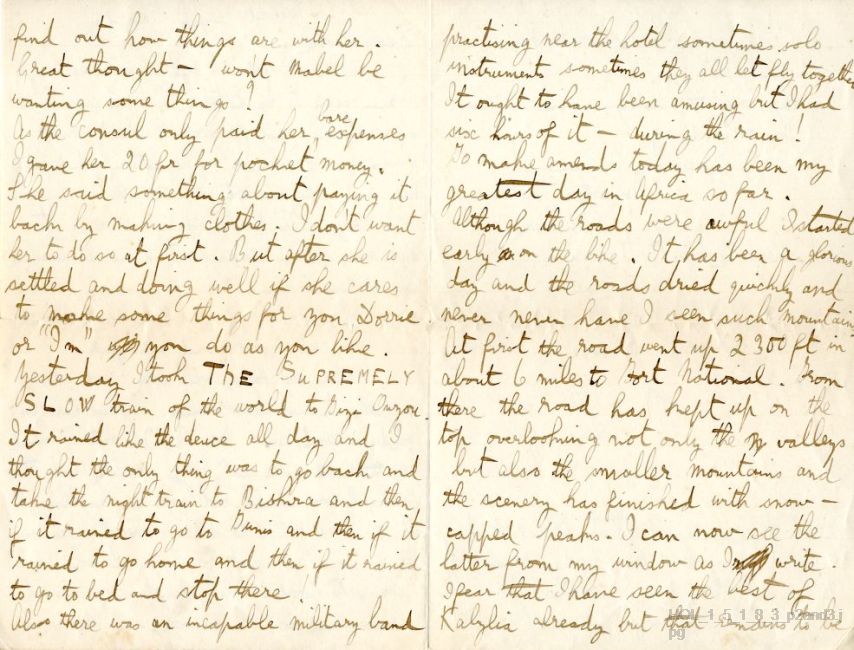 find out how things are with her.
Great thought — won't Mabel be
wanting some things?
As the Consul only paid her bare expenses
I gave her 20 fr for pocket money.
She said something about paying it
back by making clothes. I don't want
her to do so at first. But after she is
settled and doing well if she cares
to make some things for you, Dorrie
or "Im" you do as you like.
Yesterday I took THE SUPREMELY
SLOW train of the world to Tizi Ouzou.
It rained like the deuce all day and I
thought the only thing was to go back and
take the night train to Biskra and then
if it rained to go to Tunis and then if it
rained to go home and then if it rained
to go to bed and stop there.
Also there was an incapable military band
practising near the hotel sometimes solo
instruments sometimes they all let fly together
It ought to have been amusing but I had
six hours of it — during the rain!
To make amends today has been my
greatest day in Africa so far.
Although the roads were awful I started
early on the bike. It has been a glorious
day and the roads dried quickly and
never never have I seen such mountains
At first the road went up 2300 ft in
about 6 miles to Fort National. From
there the road has kept up on the
top overlooking not only the valleys
but also the smaller mountains and
the scenery has finished with snow-
capped peaks. I can now see the
latter from my window as I write.
I fear that I have seen the best of
Kabylia already but that tends to be